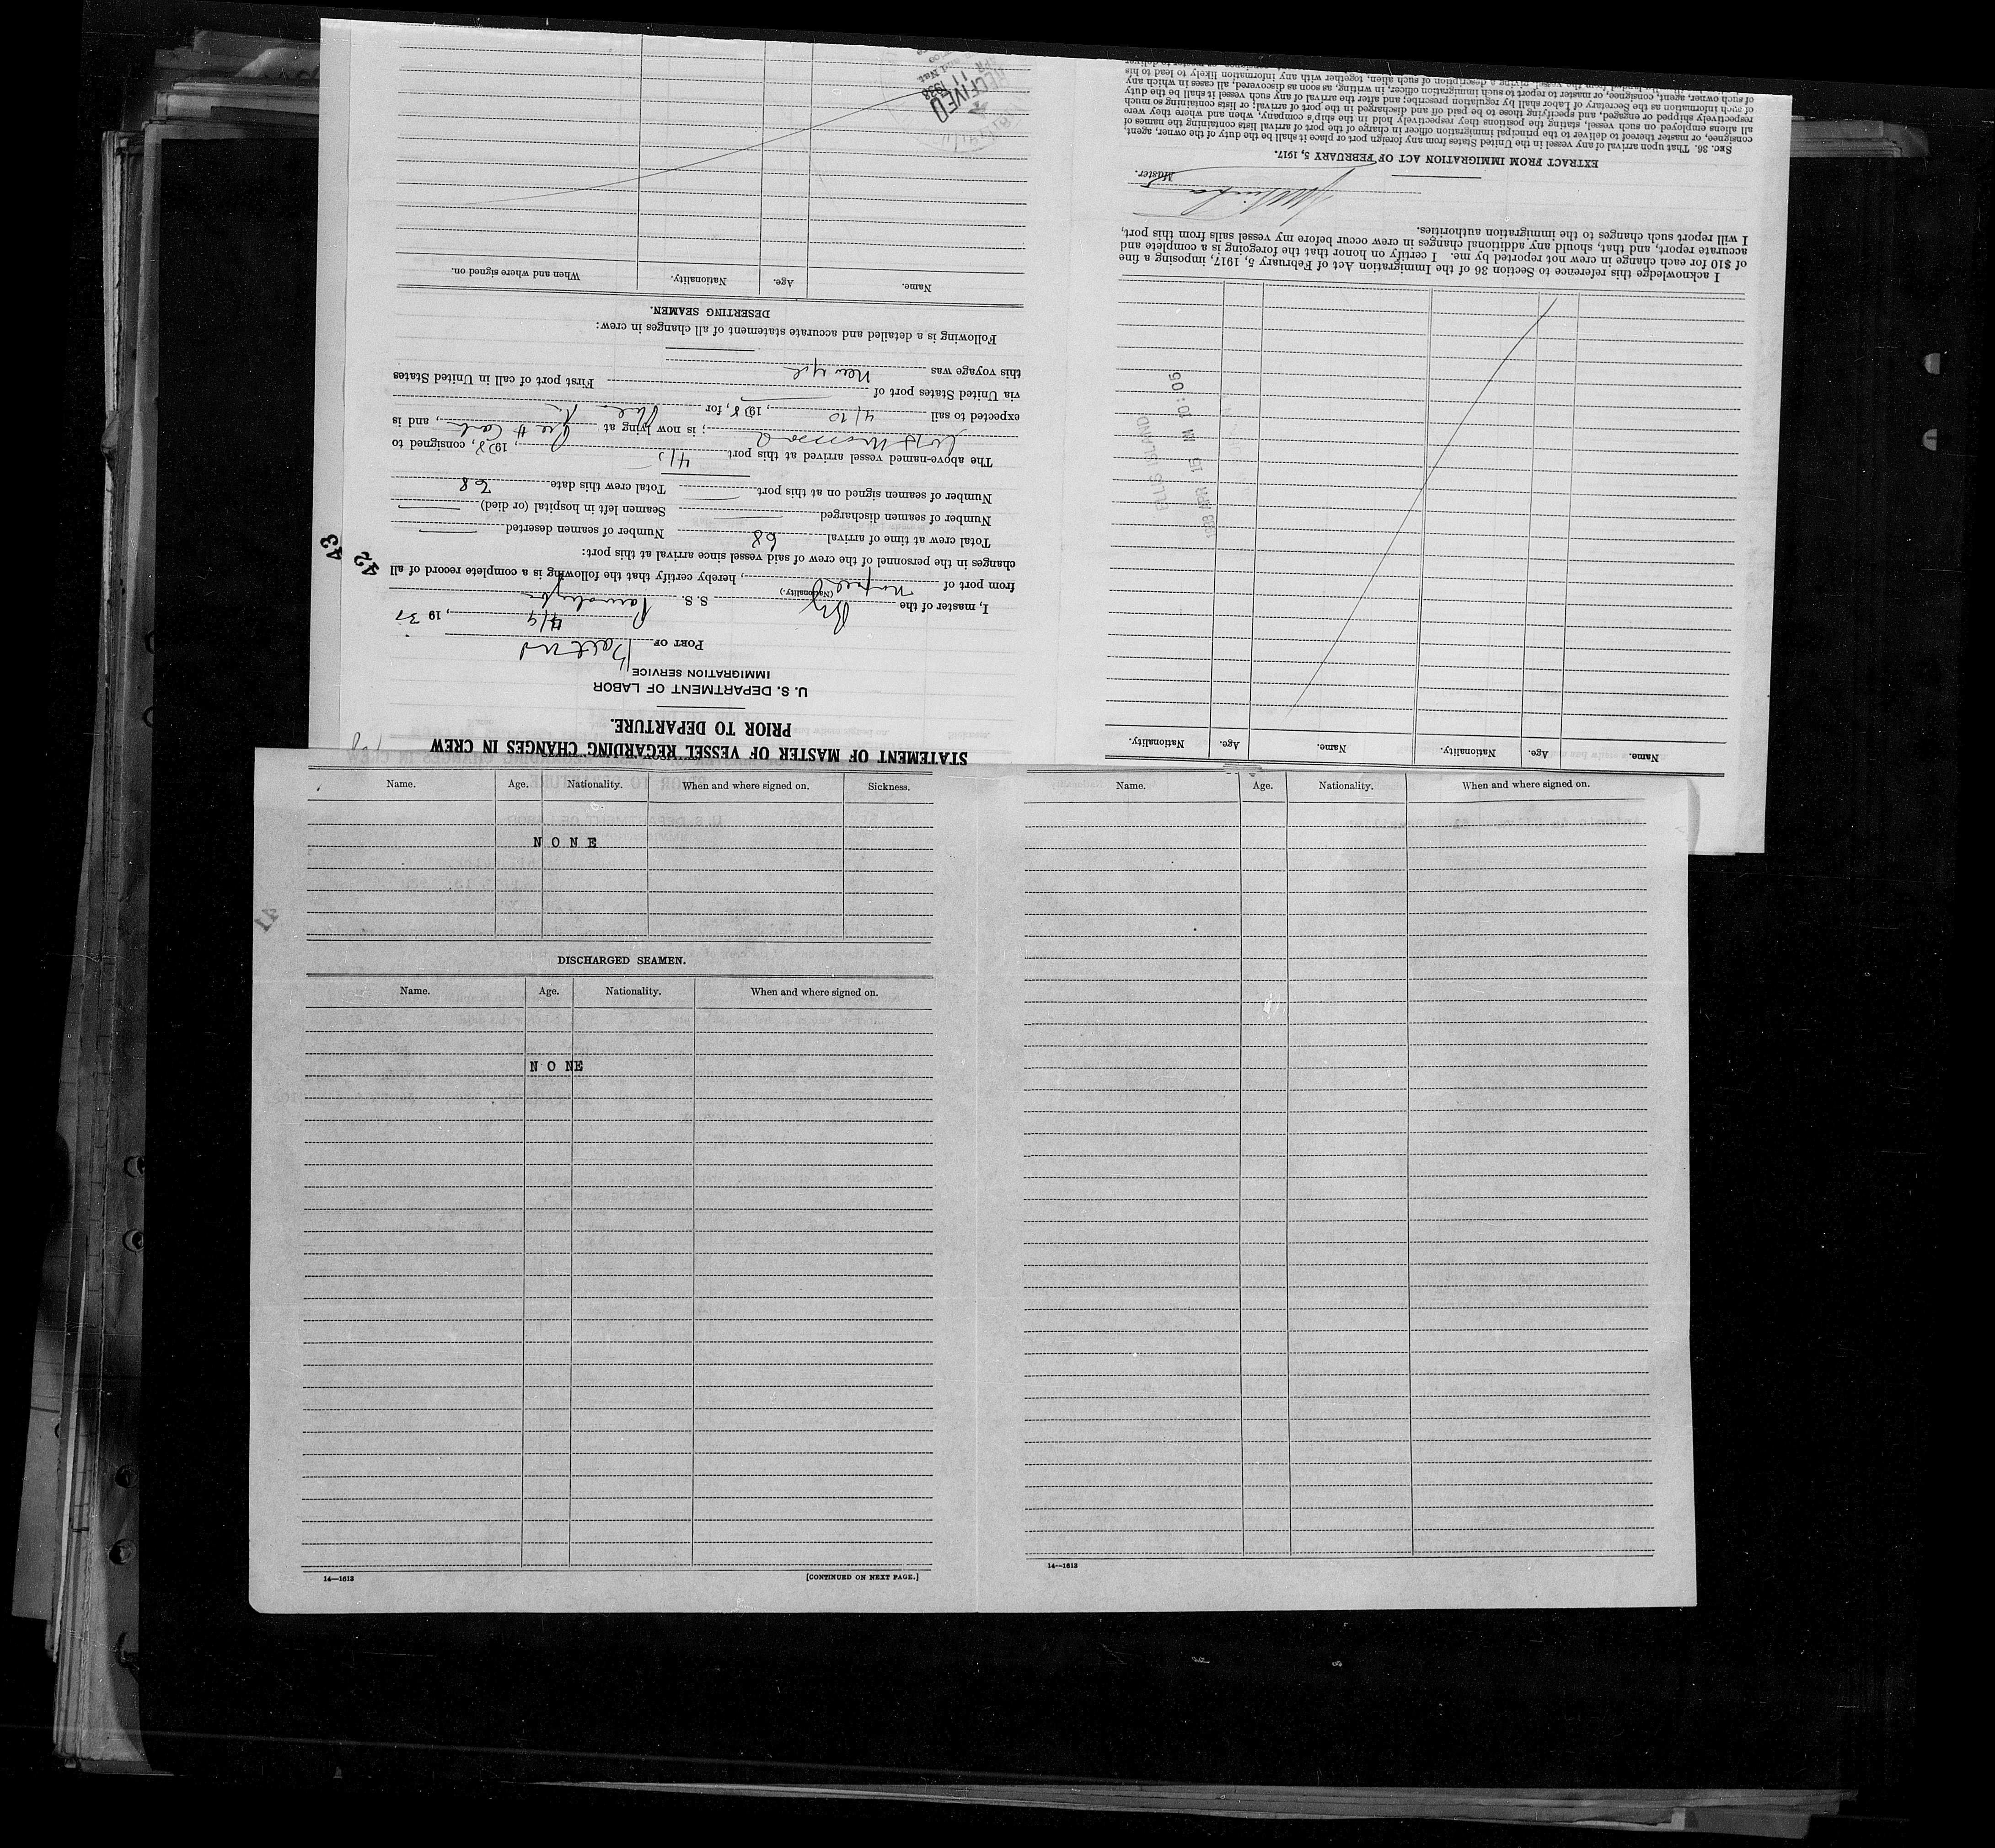 STATEMENT OF MASTER OF VESSEL REGARDING CHANGES IN CREW
PRIOR TO DEPARTURE.
U. S. DEPARTMENT OF LABOR
IMMIGRATION SERVICE
PORT OF
4/9, 19 37
I, master of the S. S.
(Nationality.)
from port of , hereby certify that the following is a complete record of all
changes in the personnel of the crew of said vessel since arrival at this port:
Total crew at time of arrival 68 Number of seamen deserted
Number of seamen discharged Seamen left in hospital (or died)
Number of seamen signed on at this port Total crew this date 68
The above-named vessel arrived at this port 4/5, 1938, consigned to
; is now lying at , and is
expected to sail 4/10, 1938, for
via United States port of First port of call in United States
this voyage was New York
Following is a detailed and accurate statement of all changes in crew:
DESERTING SEAMEN.
Name. Age. Nationality. When and where signed on.
RECEIVED
APR 11 1938
43
42
Name. Age. Nationality. Name. Age. Nationality.
ELLIS ISLAND
'38 APR 15 AM 10:05
I acknowledge this reference to Section 36 of the Immigration Act of February 5, 1917, imposing a fine
of $10 for each change in crew not reported by me. I certify on honor that the foregoing is a complete and
accurate report, and that, should any additional changes in crew occur before my vessel sails from this port,
I will report such changes to the immigration authorities.
Master.
EXTRACT FROM IMMIGRATION ACT OF FEBRUARY 5, 1917.
SEC. 36. That upon arrival of any vessel in the United States from any foreign port or place it shall be the duty of the owner, agent,
consignee, or master thereof to deliver to the principal immigration officer in charge of the port of arrival lists containing the names of
all aliens employed on such vessel, stating the positions they respectively hold in the ship's company, when and where they were
respectively shipped or engaged, and specifying those to be paid off and discharged in the port of arrival; or lists containing so much
of such information as the Secretary of Labor shall by regulation prescribe; and after the arrival of any such vessel it shall be the duty
of such owner, agent, consignee, or master to report to such immigration officer, in writing, as soon as discovered, all cases in which any
giving a description of such alien, together with any information likely to lead to his
Name. Age. Nationality. When and where signed on. Sickness.
NONE
41
DISCHARGED SEAMEN.
Name. Age. Nationality. When and where signed on.
NONE
14—1613 [CONTINUED ON NEXT PAGE.]
Name. Age. Nationality. When and where signed on.
14—1613